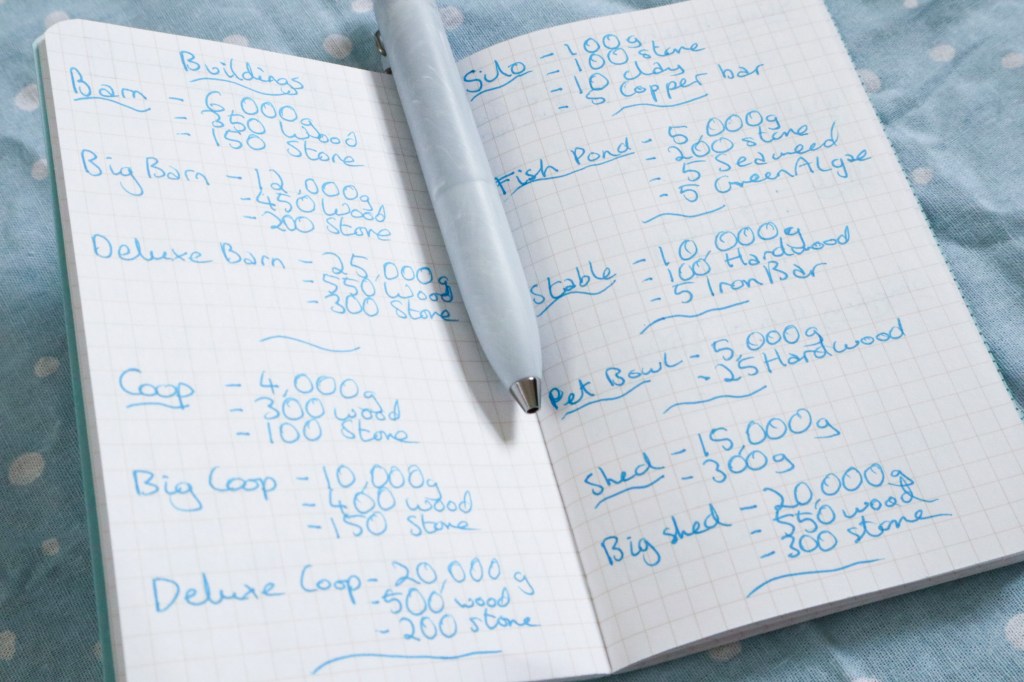 Buildings
Barn - 6,000g
- 350 wood
- 150 Stone
Big Barn - 12,000g
- 450 wood
- 200 stone
Deluxe Barn - 25,000g
- 550 wood
- 300 Stone
Coop - 4,000g
- 300 wood
- 100 Stone
Big Coop - 10,000g
- 400 wood
- 150 Stone
Deluxe Coop - 20,000g
- 500 wood
- 200 stone
Silo - 100g
- 100 stone
- 10 clay
- 5 Copper bar
Fish Pond - 5,000g
- 200 stone
- 5 Seaweed
- 5 Green Algae
Stable - 10,000g
- 100 Hardwood
- 5 Iron Bar
Pet Bowl - 5,000g
- 25 Hardwood
Shed - 15,000g
- 300g
Big shed - 20,000g
- 550 wood
- 300 stone